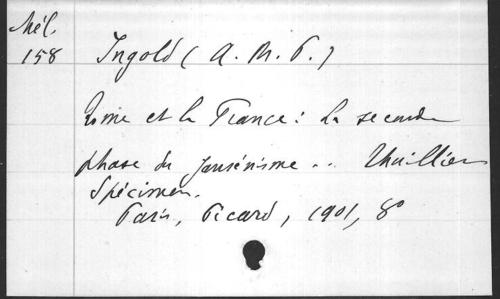 Mél.
158
Ingold (A. M. P.)
Rome et la France : La seconde
phase du jansénisme .. Thuillier
Spécimen.
Paris, Picard, 1901, 8º